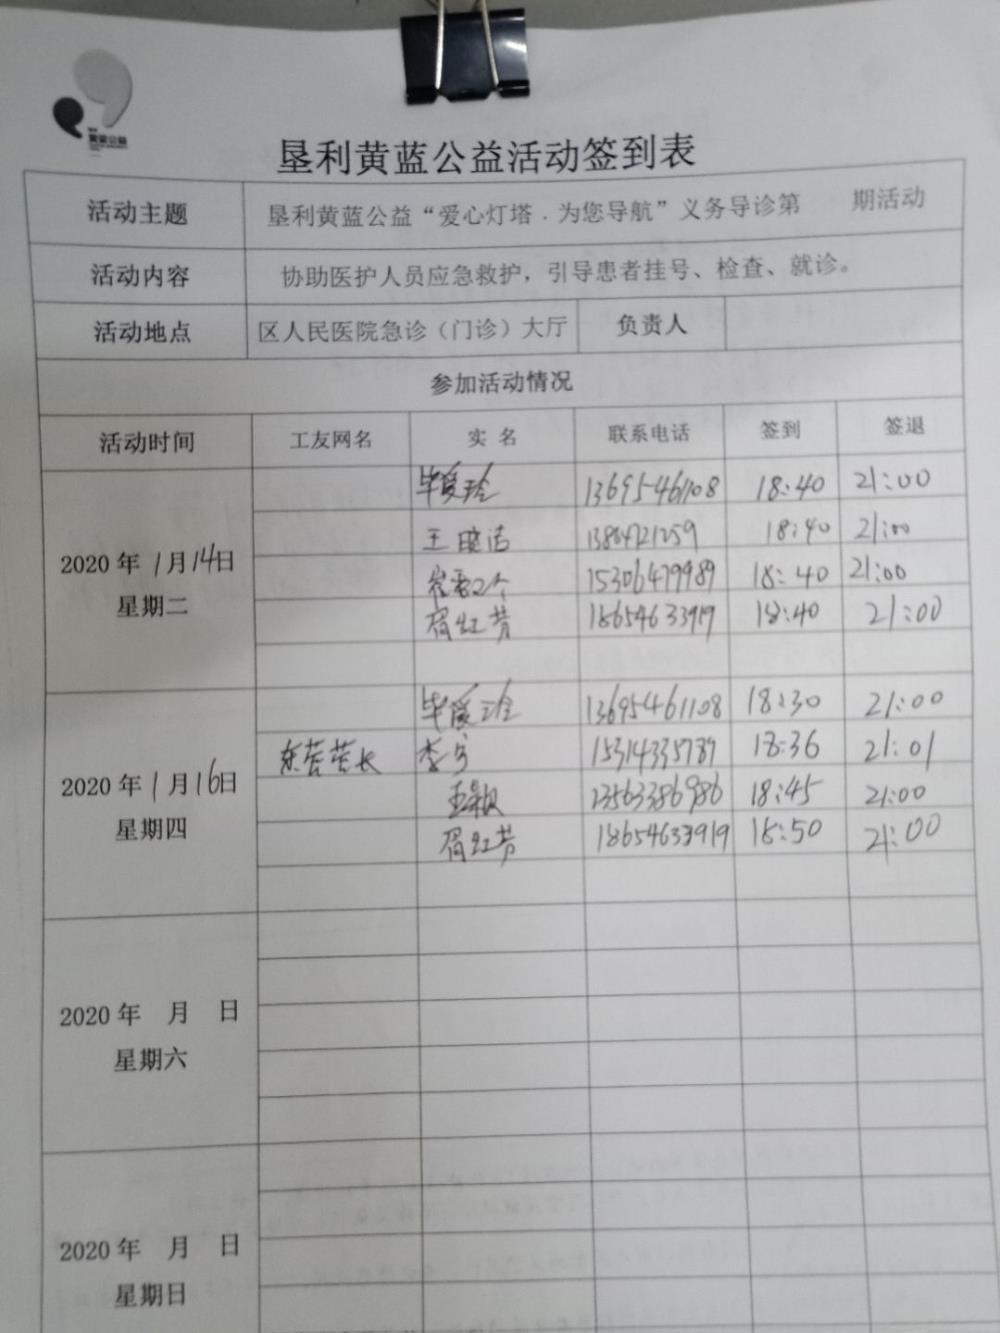 黄蓝公益
垦利黄蓝公益活动签到表
活动主题 垦利黄蓝公益“爱心灯塔·为您导航”义务导诊第 期活动
活动内容 协助医护人员应急救护，引导患者挂号、检查、就诊。
活动地点 区人民医院急诊（门诊）大厅 负责人
参加活动情况
活动时间 工友网名 实 名 联系电话 签到 签退
毕爱玲 13695461108 18:40 21:00
王晓洁 18:40 21:00
2020年1月14日
15306479989 18:40 21:00
星期二
宿红芳 18654633919 18:40 21:00
毕爱玲 13695461108 18:30 21:00
东营营长 李宁 15314335789 18:36 21:01
2020年1月16日
王颖 13563386986 18:45 21:00
星期四
宿红芳 18654633919 18:50 21:00
2020年 月 日
星期六
2020年 月 日
星期日